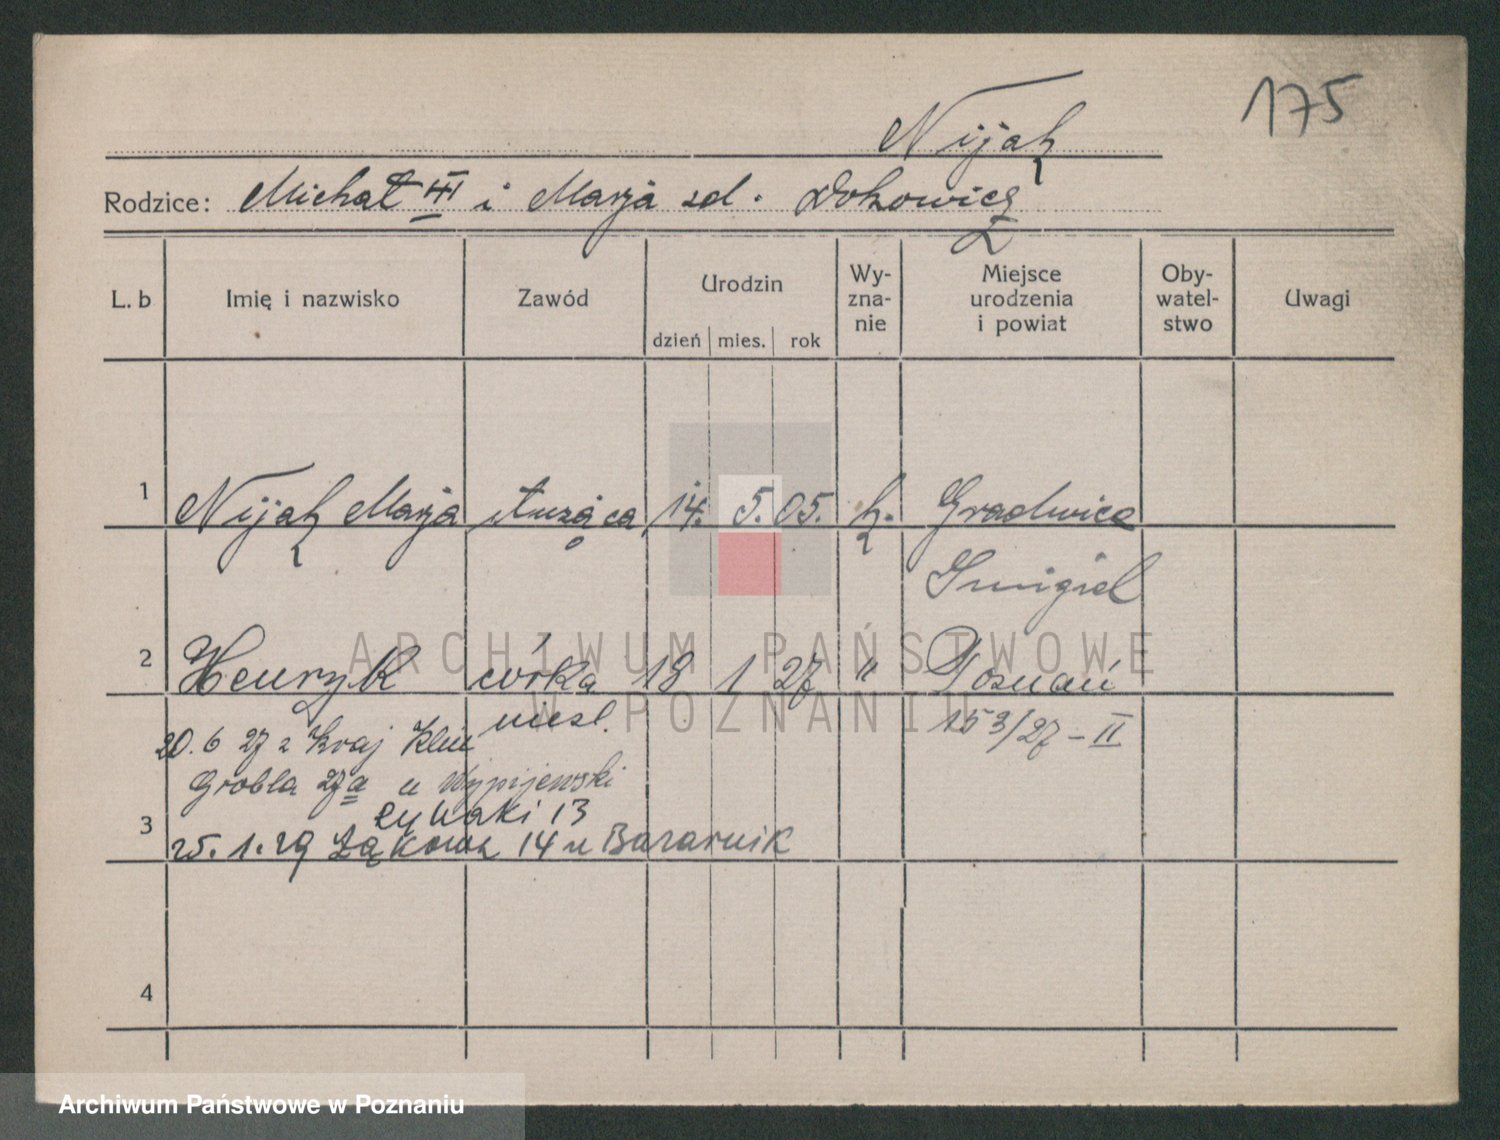 175
Nijak
Rodzice: Michał III i Marja zd. Dokowicz
L. b Imię i nazwisko Zawód Urodzin dzień mies. rok Wy-zna-nie Miejsce urodzenia i powiat Oby-watel-stwo Uwagi
1 Nijak Marja służąca 14. 5. 05. k. Gradowice
Śmigiel
2 Henryk córka 18 1 27 " Poznań
niesl. 153/27 - II
20. 6 27 z kraj
Grobla 27a u Wypijewski
3 Rybaki 13
25. 1. 29 Łąkowa 14 u Bazarnik
4
ARCHIWUM PAŃSTWOWE
W POZNANIU
Archiwum Państwowe w Poznaniu